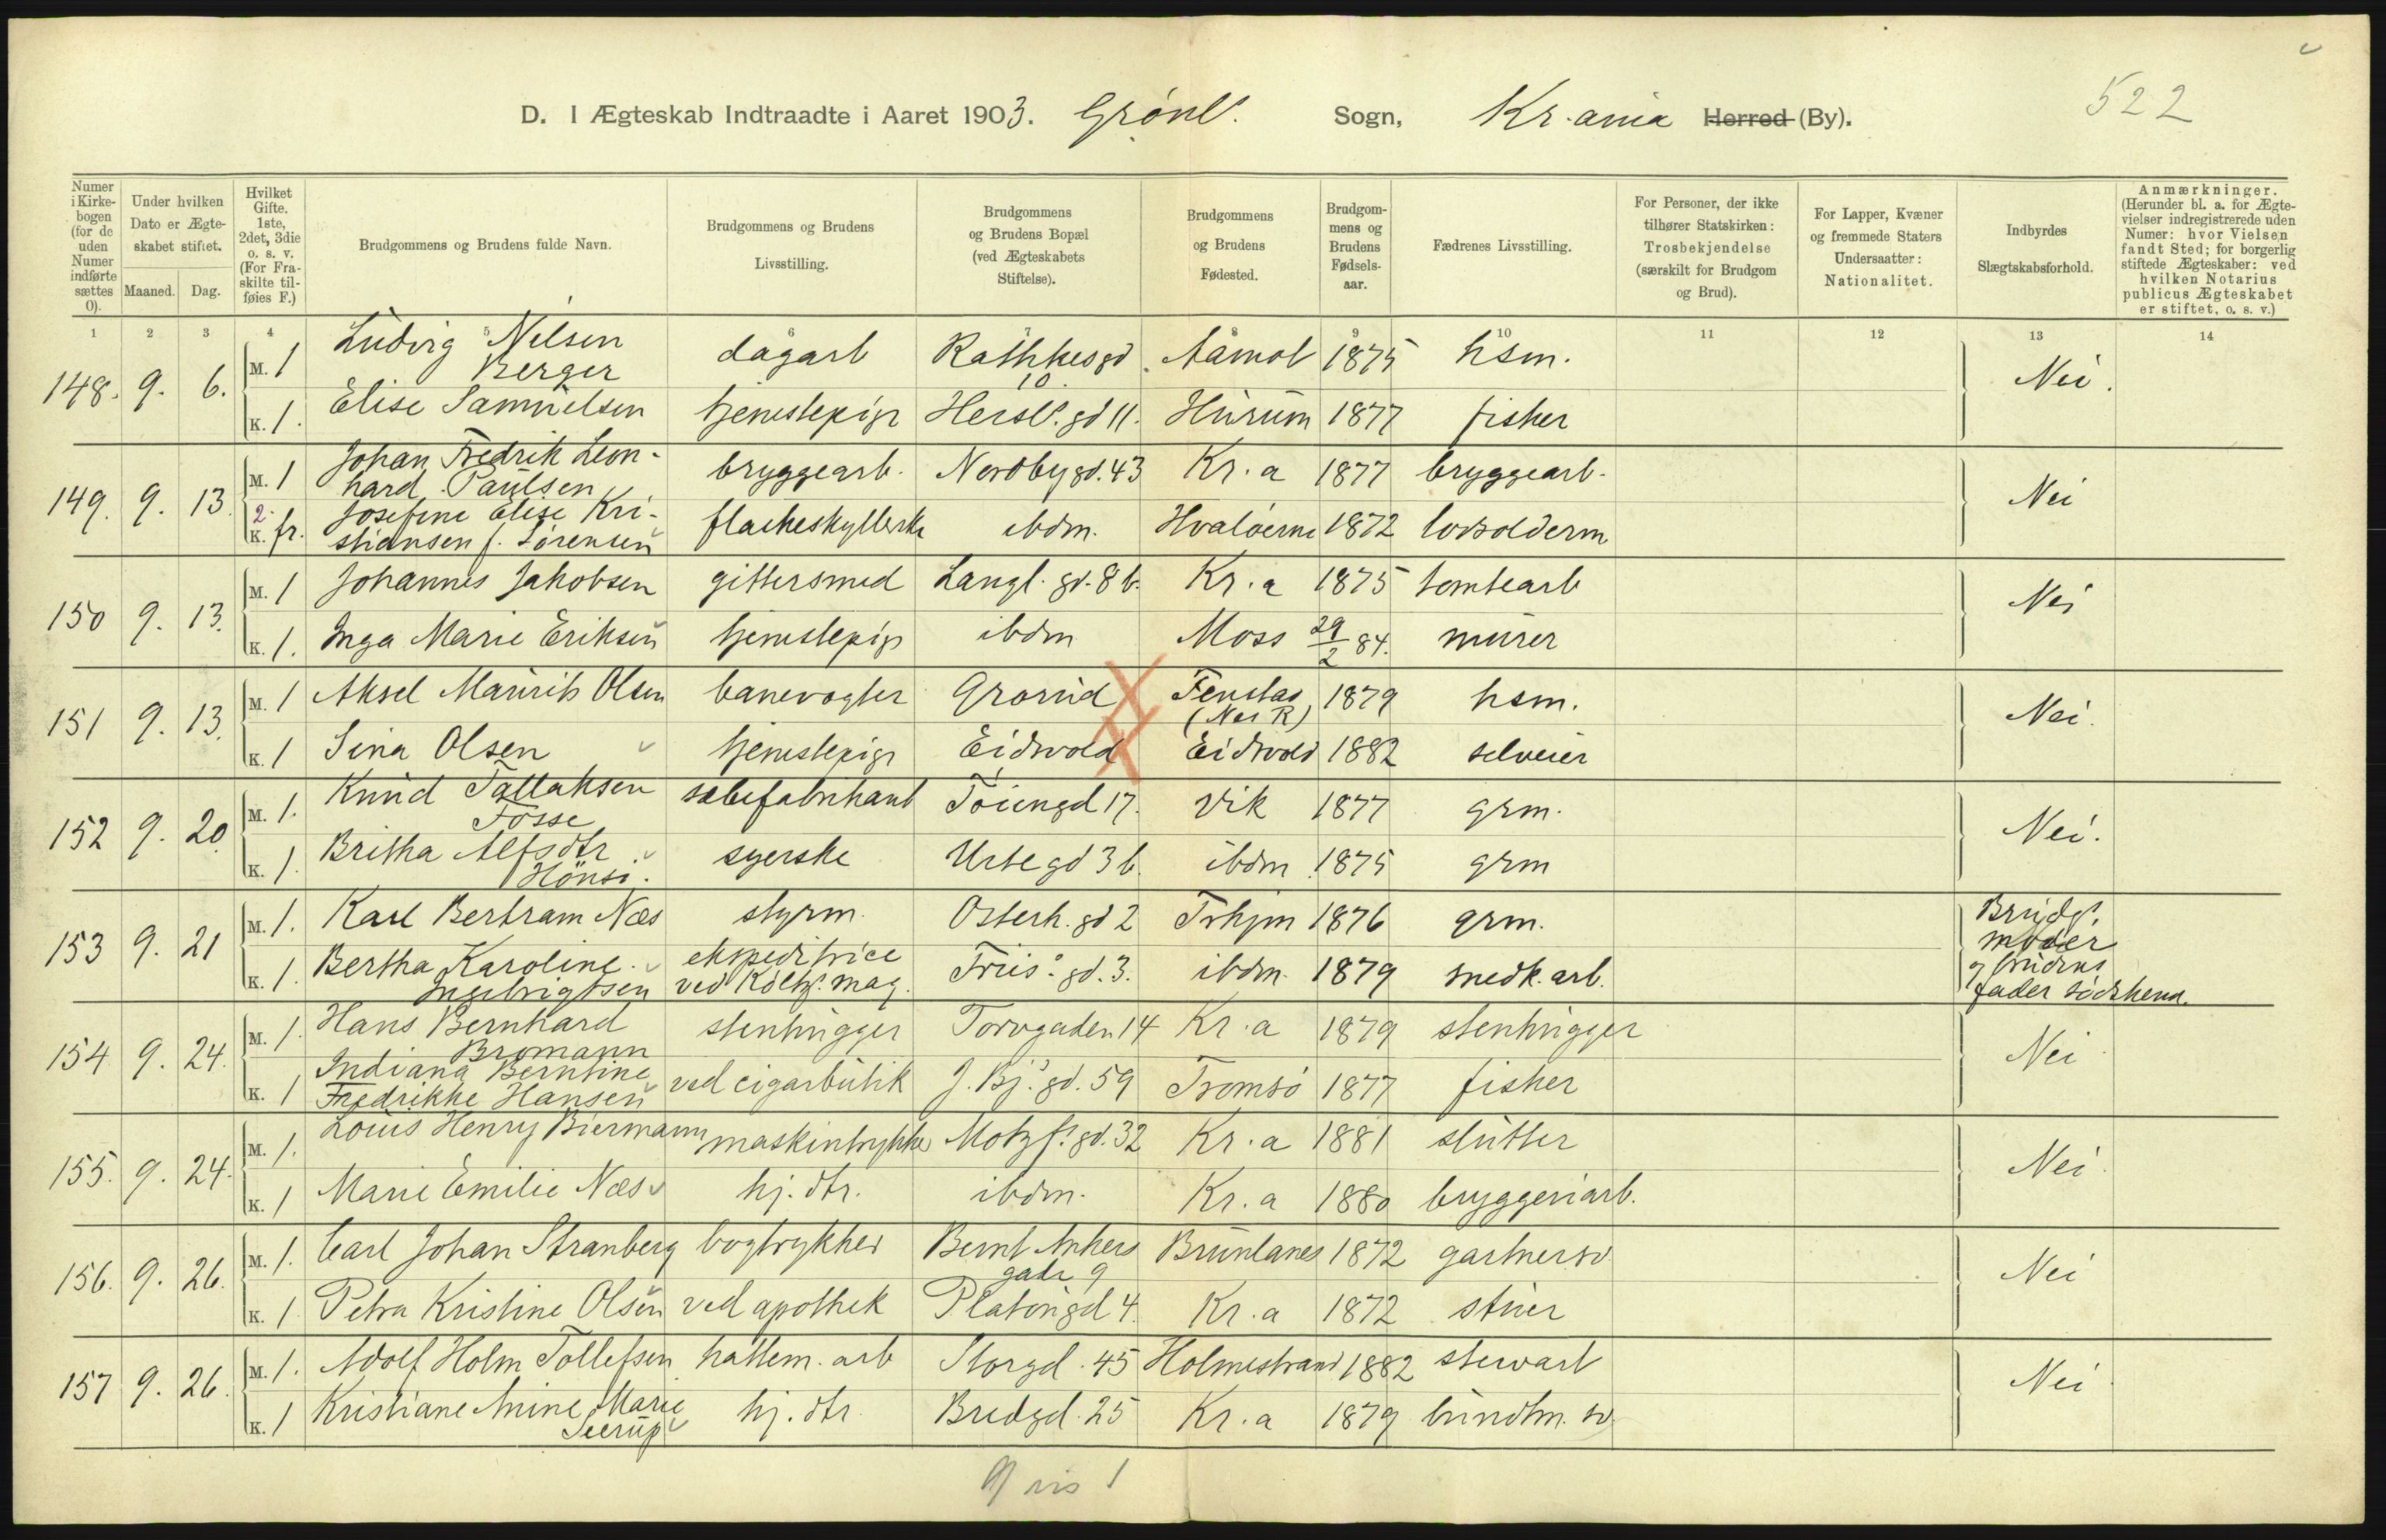 522
D. I Ægteskab Indtraadte i Aaret 1903. Grønl. Sogn, Kr.ania Herred (By).
Numer i Kirkebogen (for de uden Numer indførte sættes 0).
Under hvilken Dato er Ægteskabet stiftet.
Maaned. Dag.
Hvilket Gifte. 1ste, 2det, 3die o. s. v. (For Fraskilte tilføies F.)
Brudgommens og Brudens fulde Navn.
Brudgommens og Brudens Livsstilling.
Brudgommens og Brudens Bopæl (ved Ægteskabets Stiftelse).
Brudgommens og Brudens Fødested.
Brudgommens og Brudens Fødselsaar.
Fædrenes Livsstilling.
For Personer, der ikke tilhører Statskirken: Trosbekjendelse (særskilt for Brudgom og Brud).
For Lapper, Kvæner og fremmede Staters Undersaatter: Nationalitet.
Indbyrdes Slægtskabsforhold.
Anmærkninger. (Herunder bl. a. for Ægtevielser indregistrerede uden Numer: hvor Vielsen fandt Sted; for borgerlig stiftede Ægteskaber: ved hvilken Notarius publicus Ægteskabet er stiftet, o. s. v.)
1 2 3 4 5 6 7 8 9 10 11 12 13 14
148. 9. 6. M. 1 Ludvig Nilsen Berger dagarb Rathkesgd. 10 Aamot 1875 hsm. Nei.
K. 1. Elise Samuelsen tjenestepige Hersl. gd 11. Hurum 1877 fisker
149. 9. 13. M. 1 Johan Fredrik Leonhard Paulsen bryggearb. Nordbygd. 43 Kr.a 1877 bryggearb. Nei
2. K. fr. Josefine Elise Kristiansen f. Sørensen flaskeskyllerske ibdm. Hvaløerne 1872 lodsolderm
150 9. 13. M. 1 Johannes Jakobsen gittersmed Langl. gd. 8 b. Kr.a 1875 tomtearb Nei
K. 1. Inga Marie Eriksen tjenestepige ibdm Moss 29/2 84. murer
151 9. 13. M. 1 Aksel Maurits Olsen banevogter Grorud Fenstad (Nes R) 1879 hsm. Nei.
K. 1 Sina Olsen tjenestepige Eidsvold Eidsvold 1882 selveier
152 9. 20. M. 1. Knud Tallaksen Fosse sæbefabrikant Tøiengd 17. Vik 1877 grm. Nei.
K. 1. Britha Alfsdtr. Hønsi. syerske Urtegd 3 b. ibdm 1875 grm
153 9. 21 M. 1. Karl Bertram Næs styrm. Osterh. gd 2 Trhjm 1876 grm. Brudg. moder og brudens fader søskend.
K. 1. Bertha Karoline Ingebrigtsen ekspeditrice ved Koltz. mag. Friis. gd. 3. ibdm. 1879 snedk. arb.
154 9. 24. M. 1. Hans Bernhard Bromann stenhugger Torvgaden 14 Kr.a 1879 stenhugger Nei
K. 1 Indiana Berntine Fredrikke Hansen ved cigarbutik J. Bj. gd. 59 Tromsø 1877 fisker
155. 9. 24. M. 1. Louis Henry Biermann maskintrykker Motzf. gd. 32 Kr.a 1881 slutter Nei
K. 1 Marie Emilie Næs hj. dtr. ibdm. Kr.a 1880 bryggeriarb.
156. 9. 26. M. 1. Carl Johan Stranberg bogtrykker Bernt Ankers gade 9 Brunlanes 1872 gartnersv. Nei
K. 1 Petra Kristine Olsen ved apothek Platousgd 4. Kr.a 1872 stuer
157 9. 26. M. 1. Adolf Holm Tollefsen hattem. arb Storgd. 45 Holmestrand 1882 stewart Nei
K. 1 Kristiane Anine Marie Seerup hj. dtr. Bredgd. 25 Kr.a 1879 bundtm. sv.